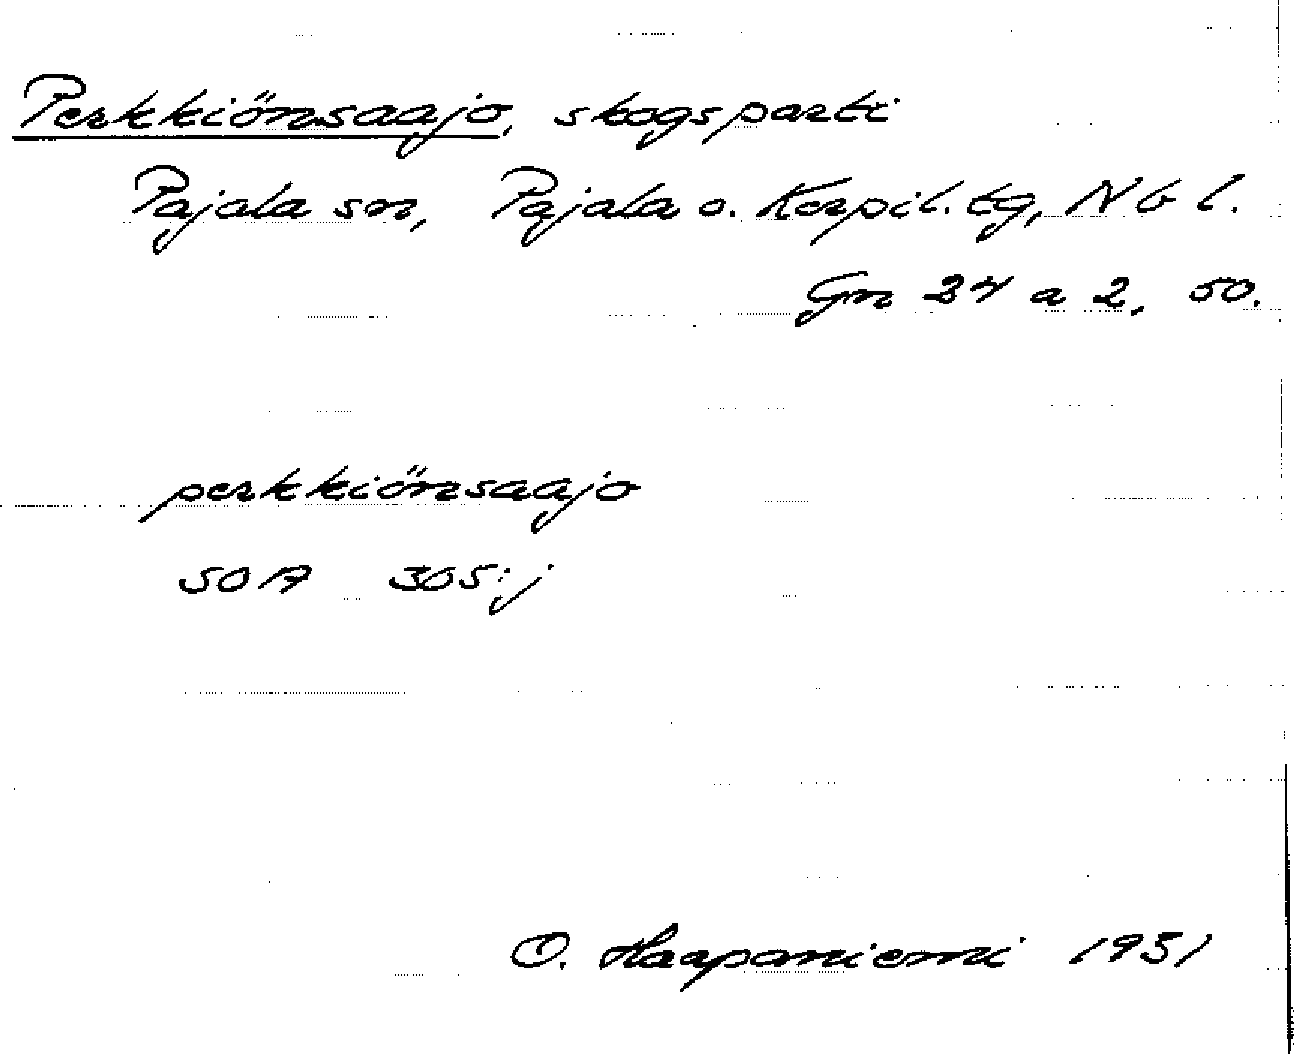 Perkkiönsaajo, skogsparti
Pajala sn, Pajala o. Korpil. tg, Nb l.
Gm 34 a 2, 50.
perkkiönsaajo
SOA 305:j
O. Haapaniemi 1951